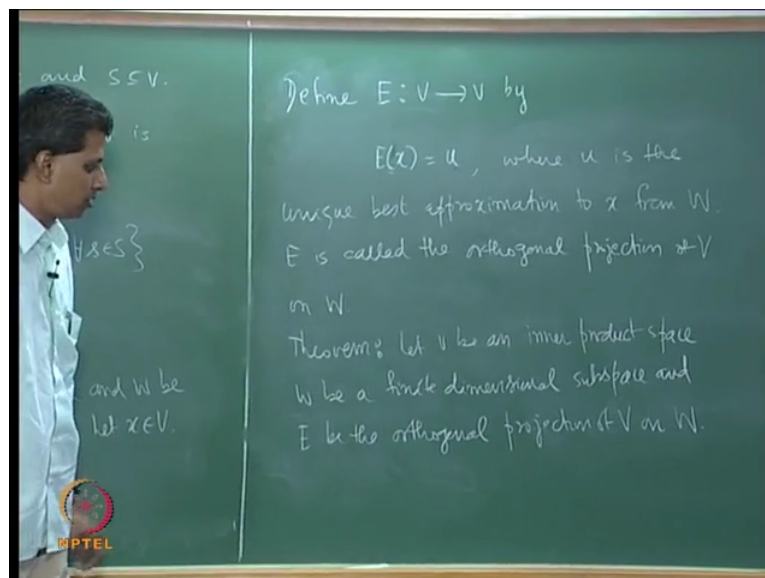 and S ⊆ V.
is
∀ s ∈ S}
and W be
Let x ∈ V.
Define E : V → V by
E(x) = u, where u is the
unique best approximation to x from W.
E is called the orthogonal projection of V
on W.
Theorem: Let V be an inner product space
W be a finite dimensional subspace and
E be the orthogonal projection of V on W.
NPTEL